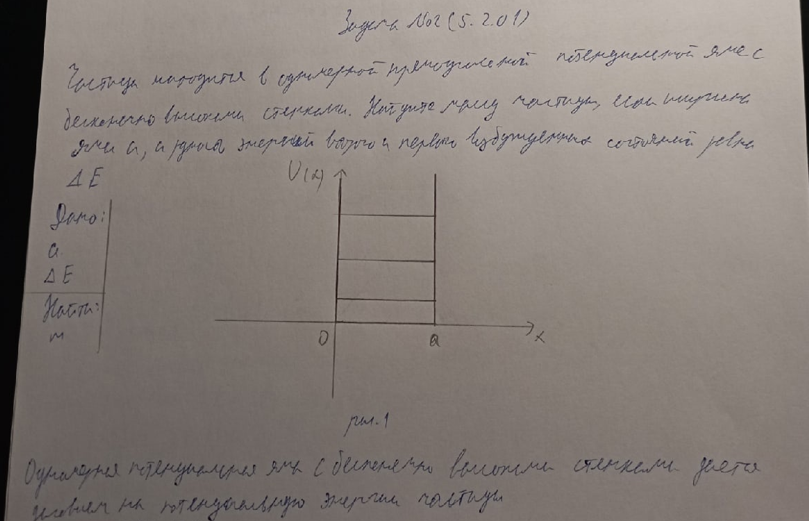 Задача №2 (5.2.01)
Частица находится в одномерной прямоугольной потенциальной яме с
бесконечно высокими стенками. Найдите массу частицы, если ширина
ямы a, а разность энергий второго и первого возбужденных состояний равна
ΔE
U(x)
Дано:
a
ΔE
Найти:
m
0 a x
рис. 1
Одномерная потенциальная яма с бесконечно высокими стенками дается
условием на потенциальную энергию частицы